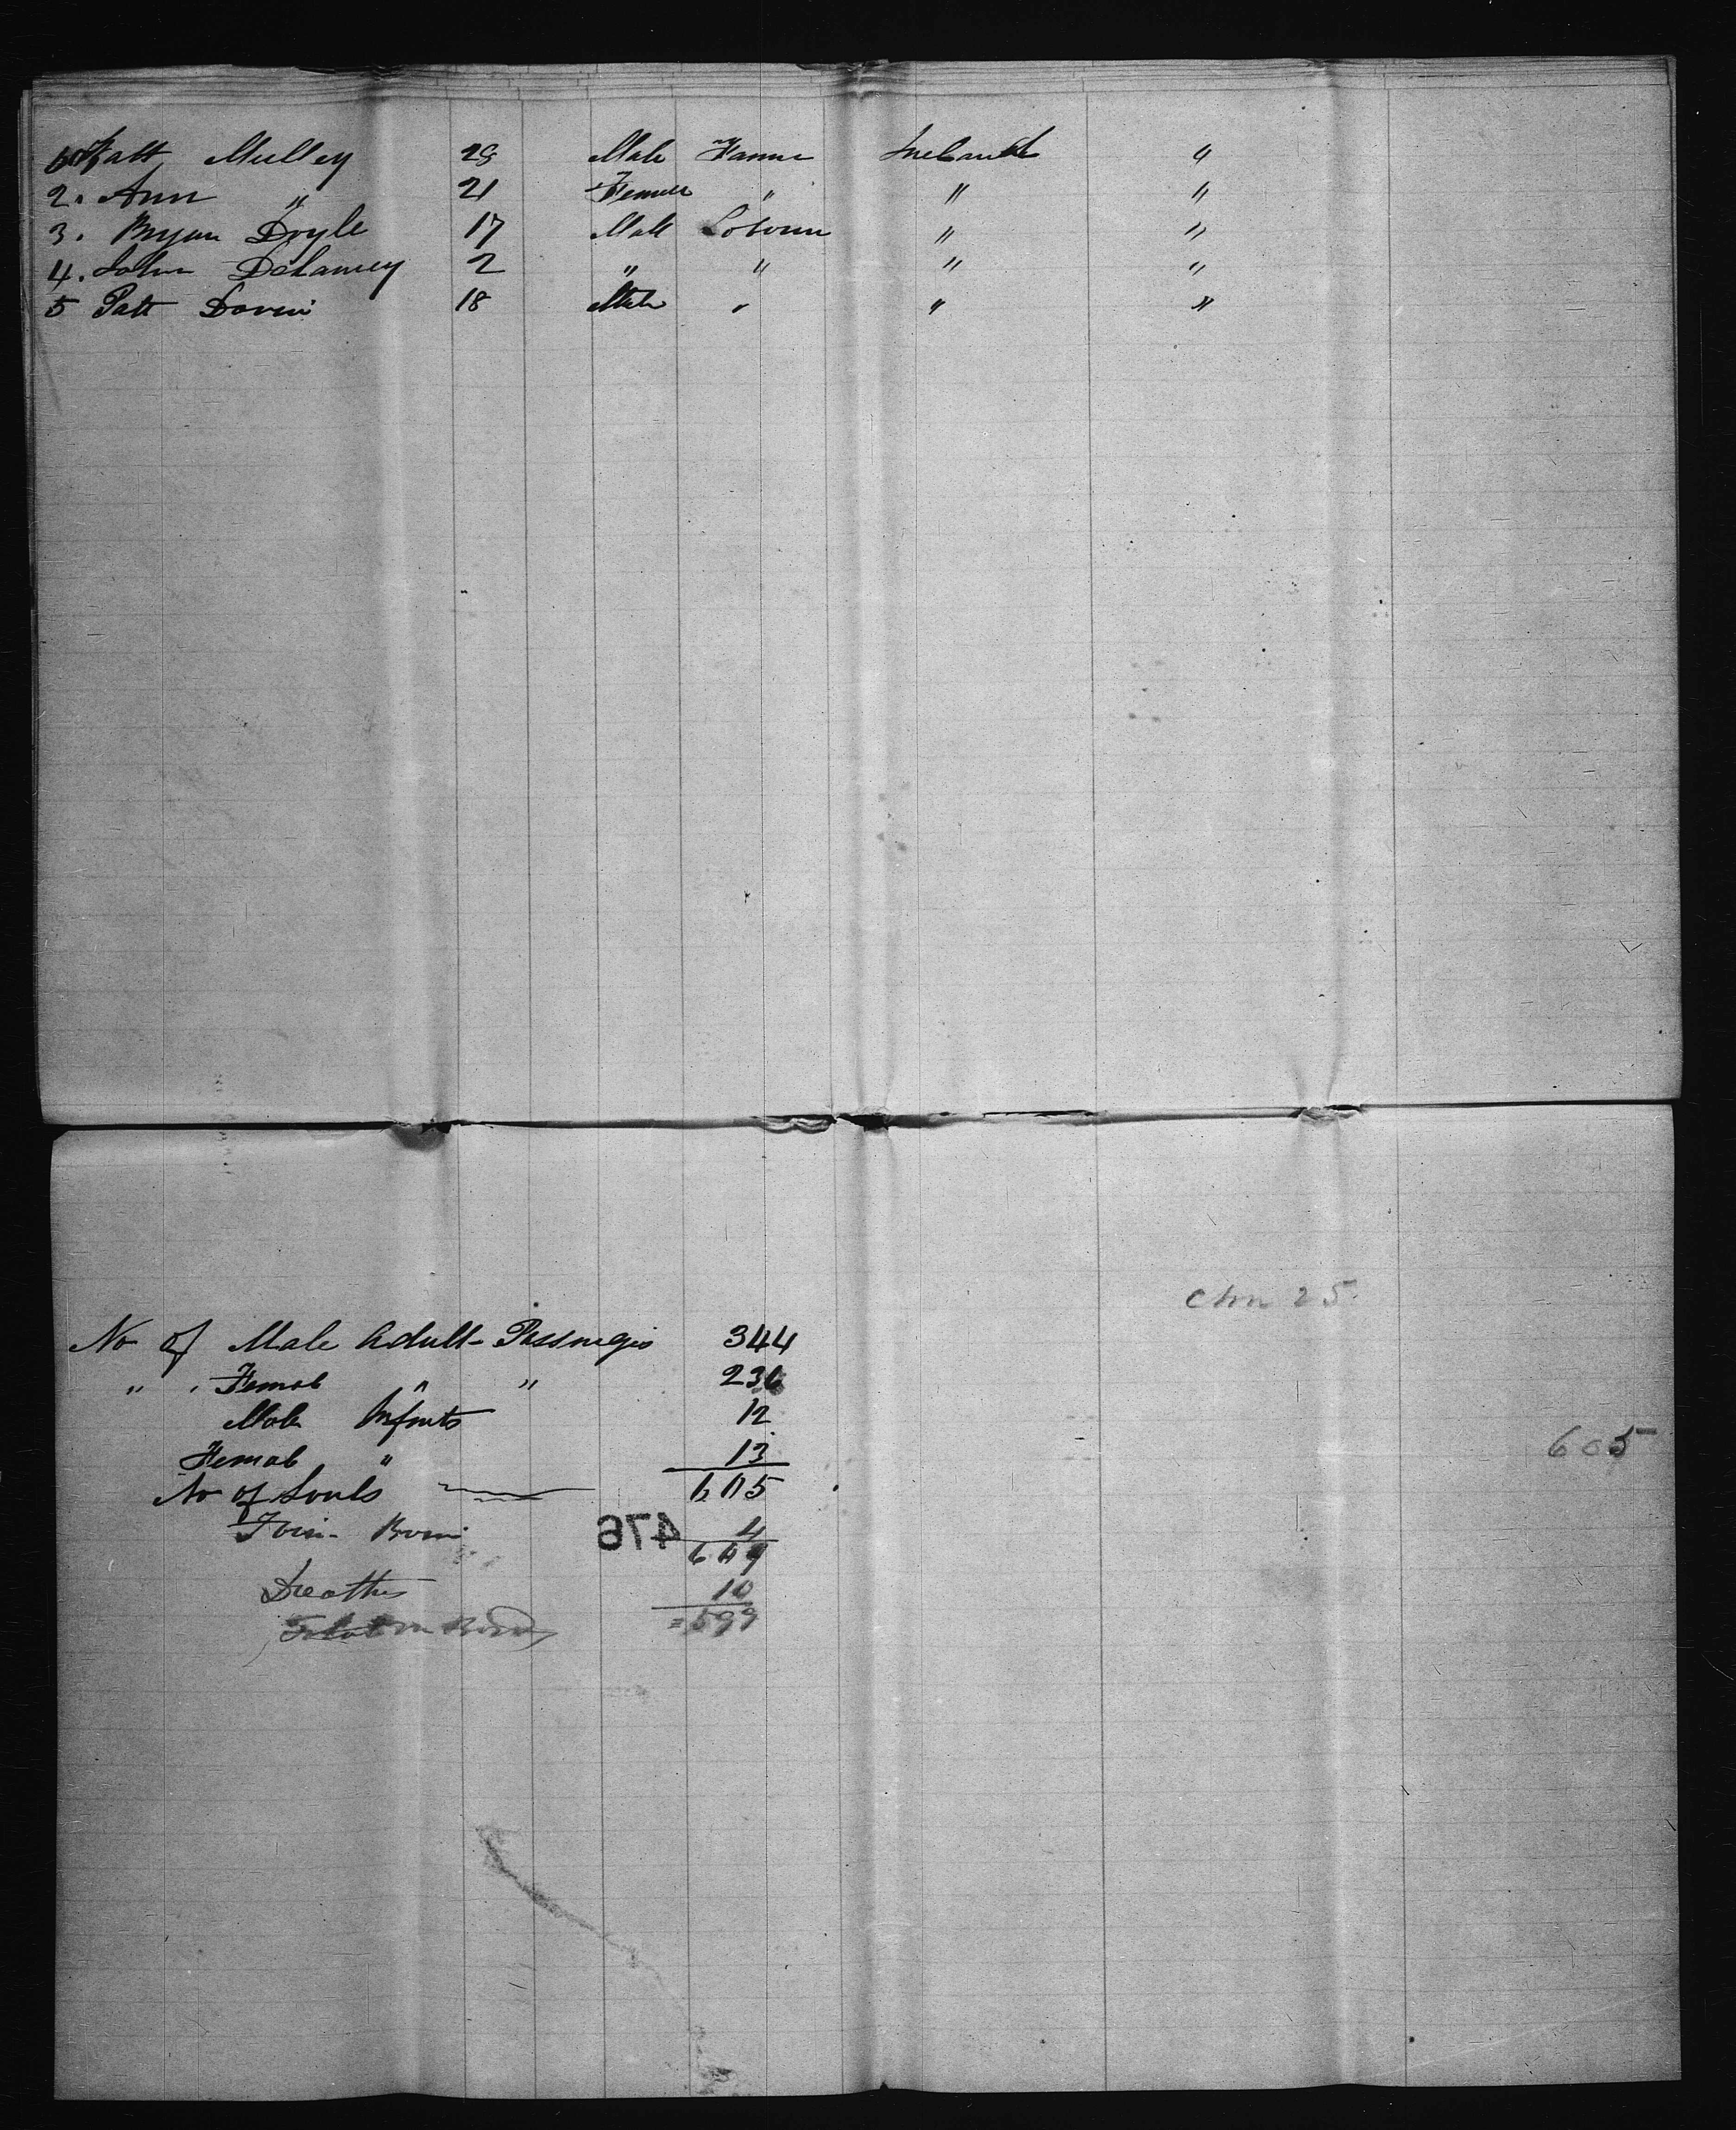 601 Patt Mulley 28 Male Farmer Ireland "
2. Ann " 21 Female " " "
3. Bryan Doyle 17 Male Laborer " "
4. John Delaney 2 " " " "
5 Patt 18 Male " " "
Chn 25
No of Male Adult Passengers 344
" " Female " " 236
Male Infants 12
Female " 13
605
No of Souls 605
Born 4
476
609
Deaths 10
Total on Board = 599